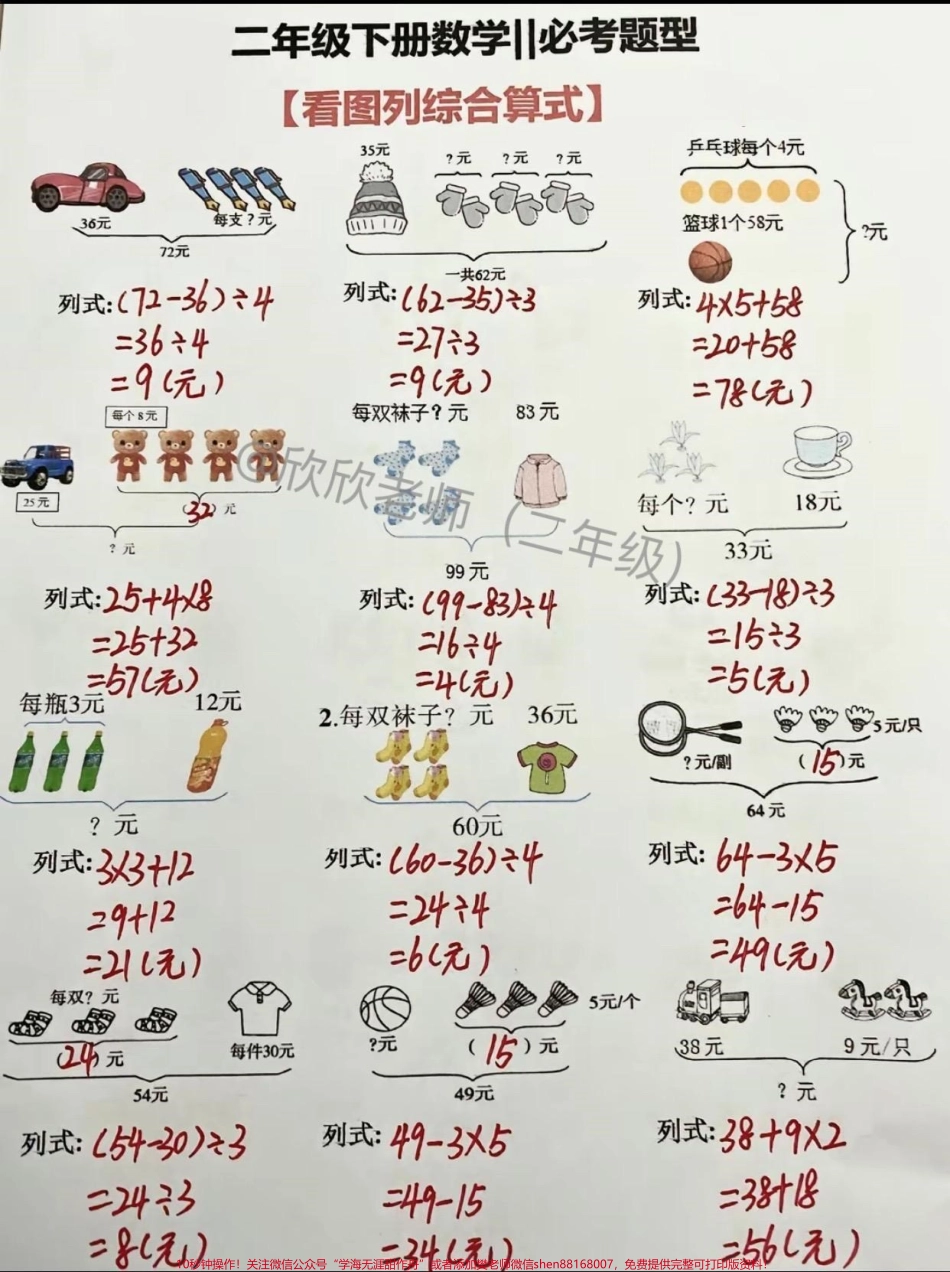 二年级下册数学||必考题型
【看图列综合算式】
36元
每支？元
72元
列式:(72-36)÷4
=36÷4
=9(元)
35元
？元 ？元 ？元
一共62元
列式:(62-35)÷3
=27÷3
=9(元)
乒乓球每个4元
篮球1个58元
?元
列式:4×5+58
=20+58
=78(元)
每个8元
25元
(32)元
？元
列式:25+4×8
=25+32
=57(元)
每双袜子？元 83元
99元
列式:(99-83)÷4
=16÷4
=4(元)
每个？元 18元
33元
列式:(33-18)÷3
=15÷3
=5(元)
每瓶3元 12元
？元
列式:3×3+12
=9+12
=21(元)
2.每双袜子？元 36元
60元
列式:(60-36)÷4
=24÷4
=6(元)
5元/只
?元/副
(15)元
64元
列式:64-3×5
=64-15
=49(元)
每双？元
(24)元
每件30元
54元
列式:(54-30)÷3
=24÷3
=8(元)
5元/个
?元
(15)元
49元
列式:49-3×5
=49-15
=34(元)
38元 9元/只
？元
列式:38+9×2
=38+18
=56(元)
@欣欣老师（二年级）
10秒钟操作！关注微信公众号“学海无涯甜作舟”或者添加樊老师微信shen88168007，免费提供完整可打印版资料！